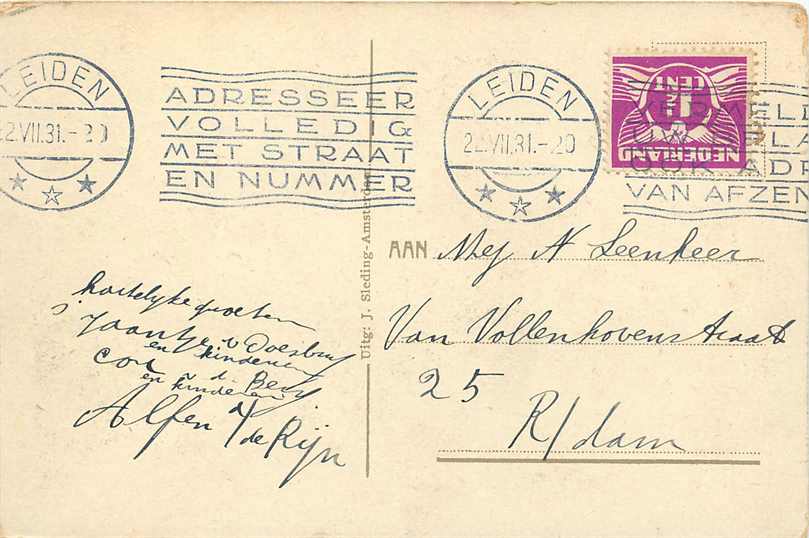 LEIDEN
22.VII.31.-20
ADRESSEER
VOLLEDIG
MET STRAAT
EN NUMMER
LEIDEN
22.VII.31.-20
VAN AFZEN
NEDERLAND
CENT
hartelyke groeten
Jaantje v Doesburg
en kinderen
Cor v. d. Berg
en kinderen
Alfen a/ de Rijn
Uitg: J. Sleding-Amsterdam
AAN Mej N Leenheer
Van Vollenhovenstraat
25
R/dam